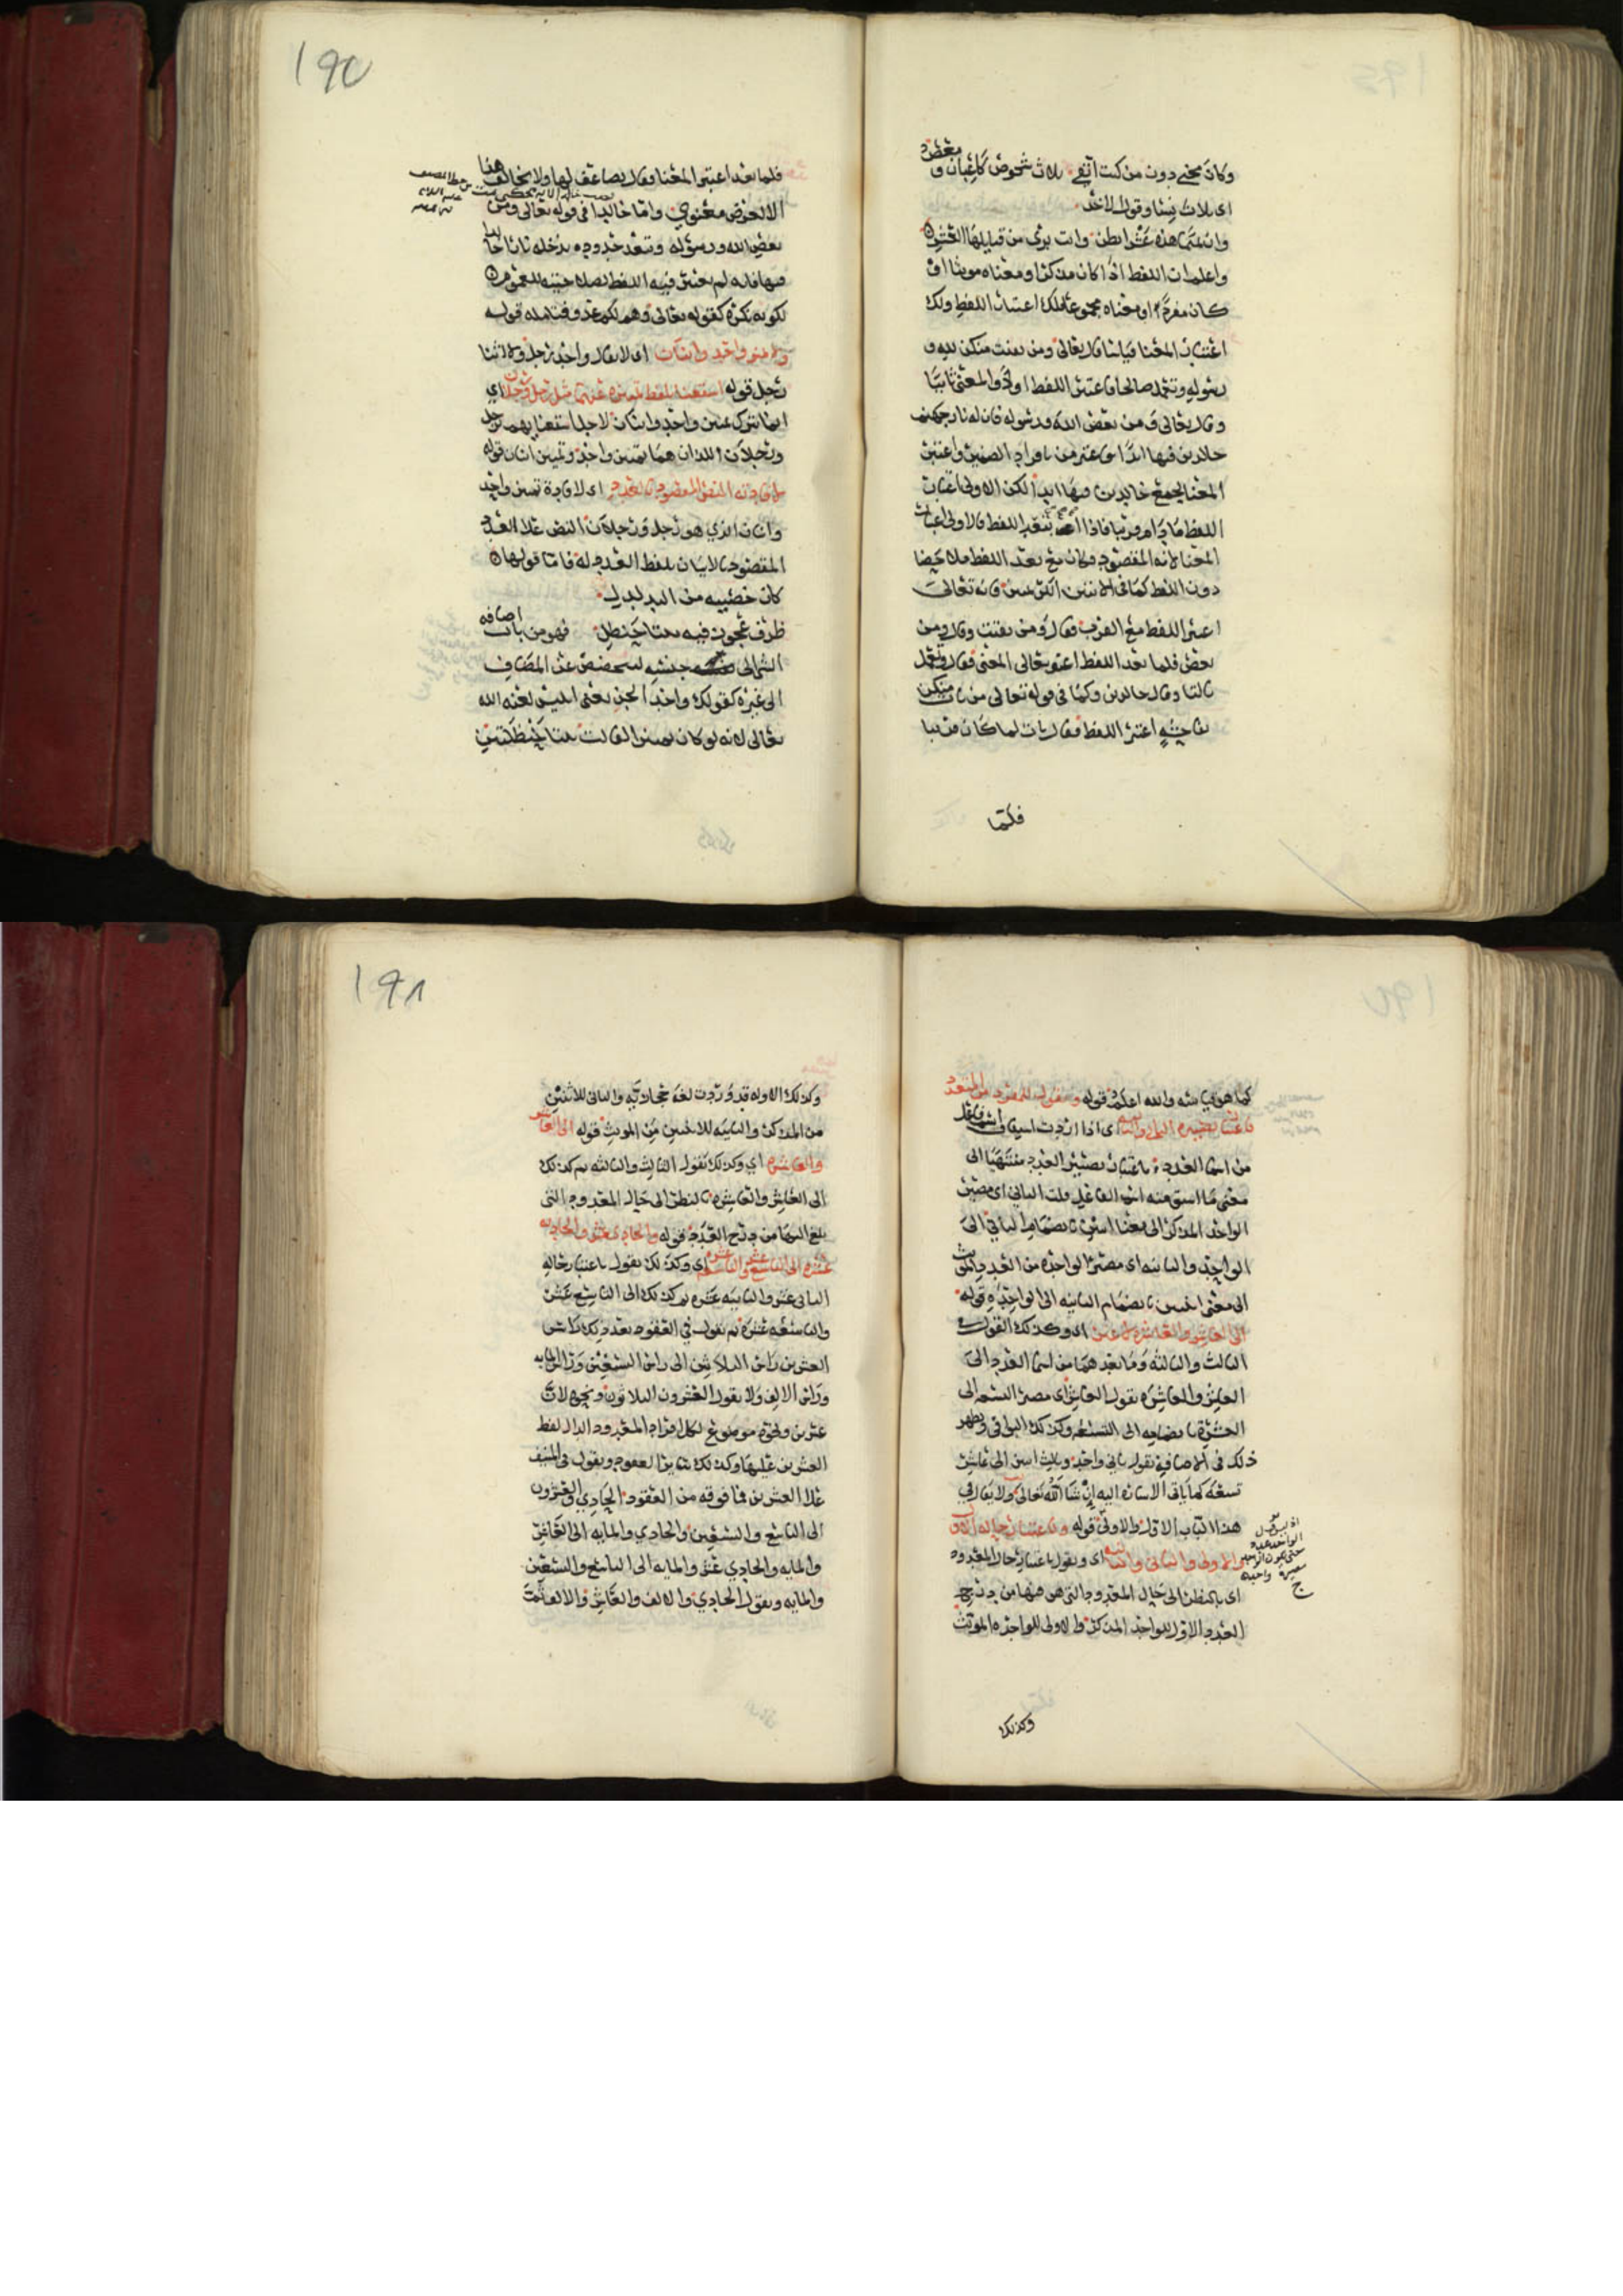 وكان مجني دون من كنت اتقي ثلاث شخوص كاعبان ومعصر
اي ثلاث نسا وقول الاخر
وان كلابا هذه عشر ابطن وانت بري من قبايلها العشر
واعلم ان اللفظ اذا كان مذكرا ومعناه مونثا او
كان مفردا ومعناه مجموعا فلك اعتبار اللفظ ولك
اعتبار المعنا قياسا قال تعالى ومن يقنت منكن لله و
رسوله وتعمل صالحا فاعتبر اللفظ اولا والمعنى ثانيا
وقال تعالى ومن يعص الله ورسوله فان له نار جهنم
خالدين فيها ابدا فاعتبر من بافراد الضمير واعتبر
المعنا بجمع خالدين فيها ابدا لكن الاولى اعتبار
اللفظ ما دام قريبا فاذا بعد اللفظ فالاولى اعتبار
المعنا لانه المقصود وكان مع بعد اللفظ
دون اللفظ كما في الايتين فانه تعالى
اعتبر اللفظ مع القرب فقال ومن يقنت وقال ومن
يعص فلما بعد اللفظ اعتبر تعالى المعنى فقال وتعمل
ثالثا وقال خالدين وكما في قوله تعالى من يات منكن
بفاحشة اعتبر اللفظ فقال يات لما كان قريبا
فلما
١٩٧
فلما بعد اعتبر المعنا فقال يضاعف لها ولا يخالف هذا
الا لعرض معنوي واما خالدا في قوله تعالى ومن
يعص الله ورسوله ويتعد حدوده يدخله نارا خالدا
فيها فانه لم يعتبر فيه اللفظ
لكونه نكره كقوله تعالى وهم لكم عدو فتامله قوله
ولا يميز واحد واثنان اي لا يقال واحد رجل ولا اثنا
رجل قوله استغنا بلفظ تمييزه عنهما مثل رجل ورجلان اي
انما ترك تمييز واحد واثنان لاجل استغنايهم برجل
ورجلان اللذان هما تمييز واحد وتمييز اثنان قوله
لافادته النص المقصود بالعدد اي لافادة تمييز واحد
واثنان الذي هو رجل ورجلان النص على العدد
المقصود بالاتيان بلفظ العدد له فاما قولها
كان خصييه من التدلدل
ظرف عجوز فيه ثنتا حنظل فهو من باب اضافه
الى جنسه ليتخصص عن المضاف
الى غيره كقولك واحد الجن يعني ابليس لعنه الله
تعالى لانه لو كان تمييز القالت ثنتا حنظلتين
كما هو قياسه والله اعلم قوله وتقول للمفرد من المتعدد
باعتبار تصييره الثاني والثانيه اي اذا اردت اسم فاعل
من اسما العدد باعتبار تصيير العدد منتهيا الى
معنى ما اشتق منه اسم الفاعل قلت الثاني اي مصير
الواحد المذكر الى معنا اثنين بانضمام الثاني الى
الواحد والثانيه اي مصيرة الواحده من العدد المونث
الى معنى اثنتين بانضمام الثانيه الى الواحده قوله
الى العاشر والعاشره لا غير اي وكذلك القول في
الثالث والثالثه وما بعدهما من اسما العدد الى
العاشر والعاشره تقول العاشر اي مصير التسعه الى
العشره بانضمامه الى التسعه وكذلك البواقي ويظهر
ذلك في الاضافه تقول ثاني واحد وثالث اثنين الى عاشر
تسعه كما ياتي الاشاره اليه ان شا الله تعالى ولا يقال في
هذا الباب الاول والاولى قوله وباعتبار حاله الاول
والاولى والثاني والثانيه اي وتقول باعتبار حال المعدود
اي بالنظر الى حال المعدود التي هي منها من درج
العدد الاول للواحد المذكر والاولى للواحده المونث
وكذلك
١٩٨
وكذلك الاوله قد وردت لغه حجازيه والثاني للاثنين
من المذكر والثانيه للاثنتين من المونث قوله الى العاشر
والعاشره اي وكذلك تقول الثالث والثالثه ثم كذلك
الى العاشر والعاشره بالنظر الى حال المعدود التي
بلغ اليها من درج العدد قوله والحادي عشر والحاديه
عشره الى التاسع عشر والتاسعه عشره اي وكذلك تقول باعتبار حاله
الثاني عشر والثانيه عشره ثم كذلك الى التاسع عشر
والتاسعه عشره ثم تقول في العقود بعد ذلك راس
العشرين راس الثلاثين الى راس التسعين وراس المايه
وراس الالف ولا تقول العشرون الثلاثون ونحوه لان
عشرين ونحوه موضوع لكل افراد المعدود الدال لفظ
العشرين عليها وكذلك ساير العقود وتقول في المنيف
على العشرين فما فوقه من العقود الحادي والعشرون
الى التاسع والتسعين والحادي والمايه الى العاشر
والمايه والحادي عشر والمايه الى التاسع والتسعين
والمايه وتقول الحادي والالف والعاشر والالف ثمت